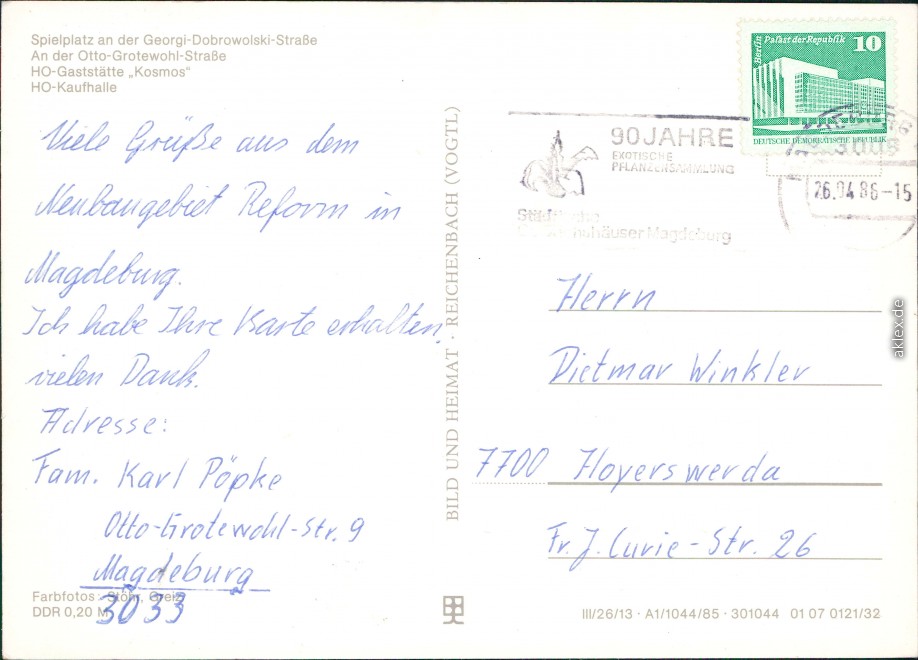 Spielplatz an der Georgi-Dobrowolski-Straße
An der Otto-Grotewohl-Straße
HO-Gaststätte „Kosmos"
HO-Kaufhalle
Viele Grüße aus dem
Neubaugebiet Reform in
Magdeburg.
Ich habe Ihre Karte erhalten,
vielen Dank.
Adresse:
Fam. Karl Pöpke
Otto-Grotewohl-Str. 9
Magdeburg
3033
Farbfotos: Stöhr, Greiz
DDR 0,20 M
BILD UND HEIMAT · REICHENBACH (VOGTL)
Berlin Palast der Republik 10
DEUTSCHE DEMOKRATISCHE REPUBLIK
90 JAHRE
EXOTISCHE
PFLANZENSAMMLUNG
Städtische
Magdeburg
26.04 86-15
Herrn
Dietmar Winkler
7700 Hoyerswerda
Fr. J. Curie-Str. 26
III/26/13 · A1/1044/85 · 301044 01 07 0121/32
aklex.de